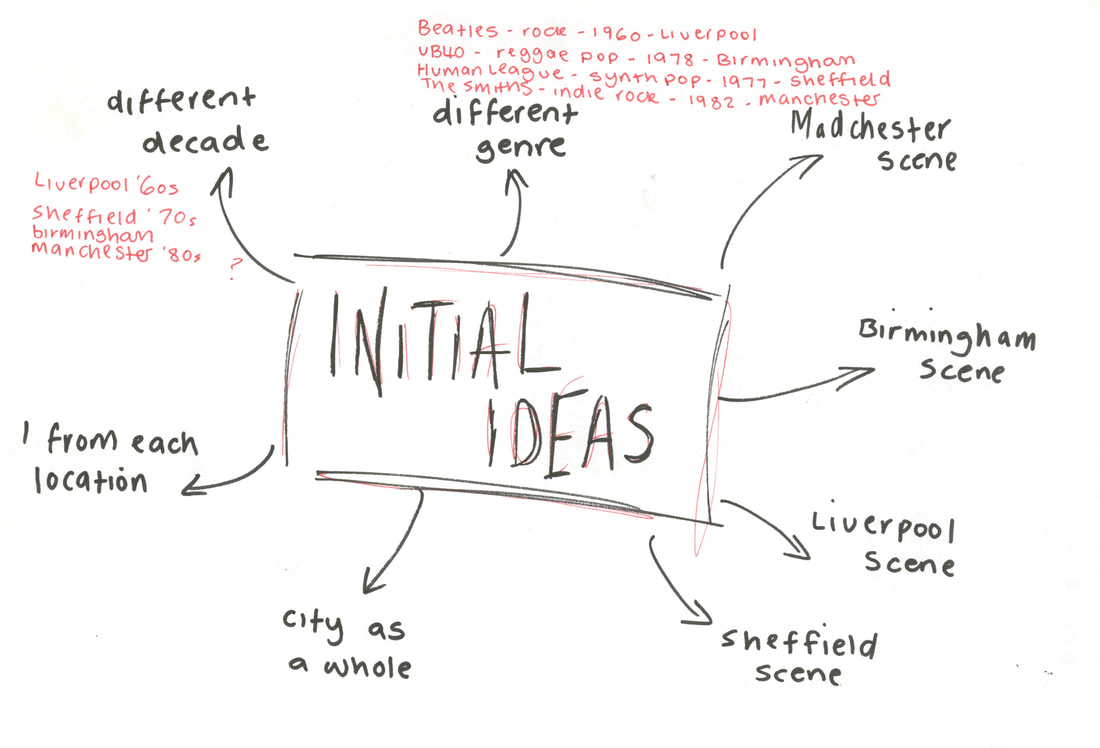 Beatles - rock - 1960 - Liverpool
UB40 - reggae pop - 1978 - Birmingham
Human League - synth pop - 1977 - Sheffield
The Smiths - indie rock - 1982 - Manchester
different
decade
Liverpool '60s
Sheffield '70s
birmingham
manchester '80s
?
different
genre
Madchester
scene
INITIAL
IDEAS
Birmingham
scene
1 from each
location
Liverpool
scene
city as
a whole
Sheffield
scene